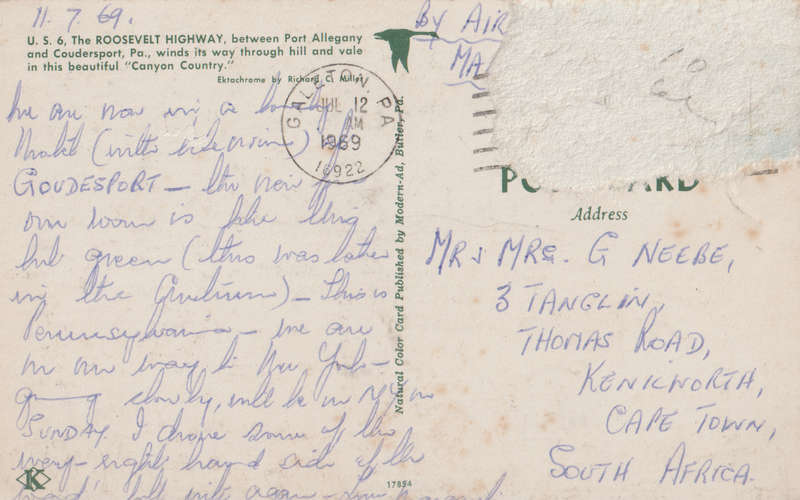 11.7.69.
U. S. 6, The ROOSEVELT HIGHWAY, between Port Allegany
and Coudersport, Pa., winds its way through hill and vale
in this beautiful "Canyon Country."
Ektachrome by Richard C. Miller
We are now in a lovely
Motel (with televison)
GOUDESPORT — the view from
our room is like this
but green (this was taken
in the Autumn) — This is
Pennsylvania — we are
on our way to New York —
going slowly, will be in N.Y. on
SUNDAY. I drove some of the
way — right hand side of the
GALETON, PA
JUL 12
AM
1969
16922
Natural Color Card Published by Modern-Ad, Butler, Pa.
17894
K
BY AIR
MA
Address
MR & MRS. G NEEBE,
3 TANGLIN,
THOMAS ROAD,
KENILWORTH,
CAPE TOWN,
SOUTH AFRICA.